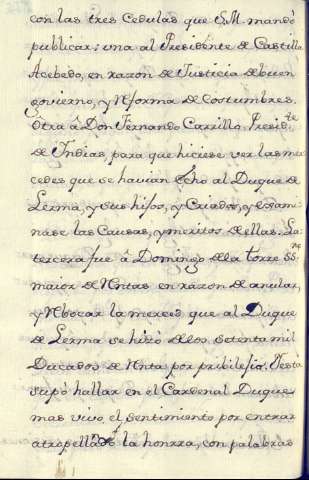 con las tres Cedulas que S.M. mandó
publicar; una al Presidente de Castilla
Acebedo, en razon de Justicia de buen
govierno, y Reforma de Costumbres.
Otra â Don Fernando Carrillo Presid.te
de Indias, para que hiciese ver las mer
cedes que se havian Echo al Duque de
Lerma, y sus hijos, y Criados, y exsami
nase las Causas, y meritos de ellas. La
tercera fue â Domingo de la torre SS.no
maior de Rntas en razon de anular,
y Rbocar la merced que al Duque
de Lerma se hizo de los setenta mil
Ducados de Rnta por pribilejio. Y esta
supó hallar en el Cardenal Duque
mas vivo el sentimiento por entrar
atropellãdo la honrra, con palabras